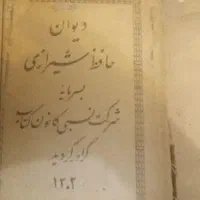 دیوان
حافظ شیرازی
بسرمایه
شرکت نسبی کانون کتاب
گراور گردید
۱۳۰۲